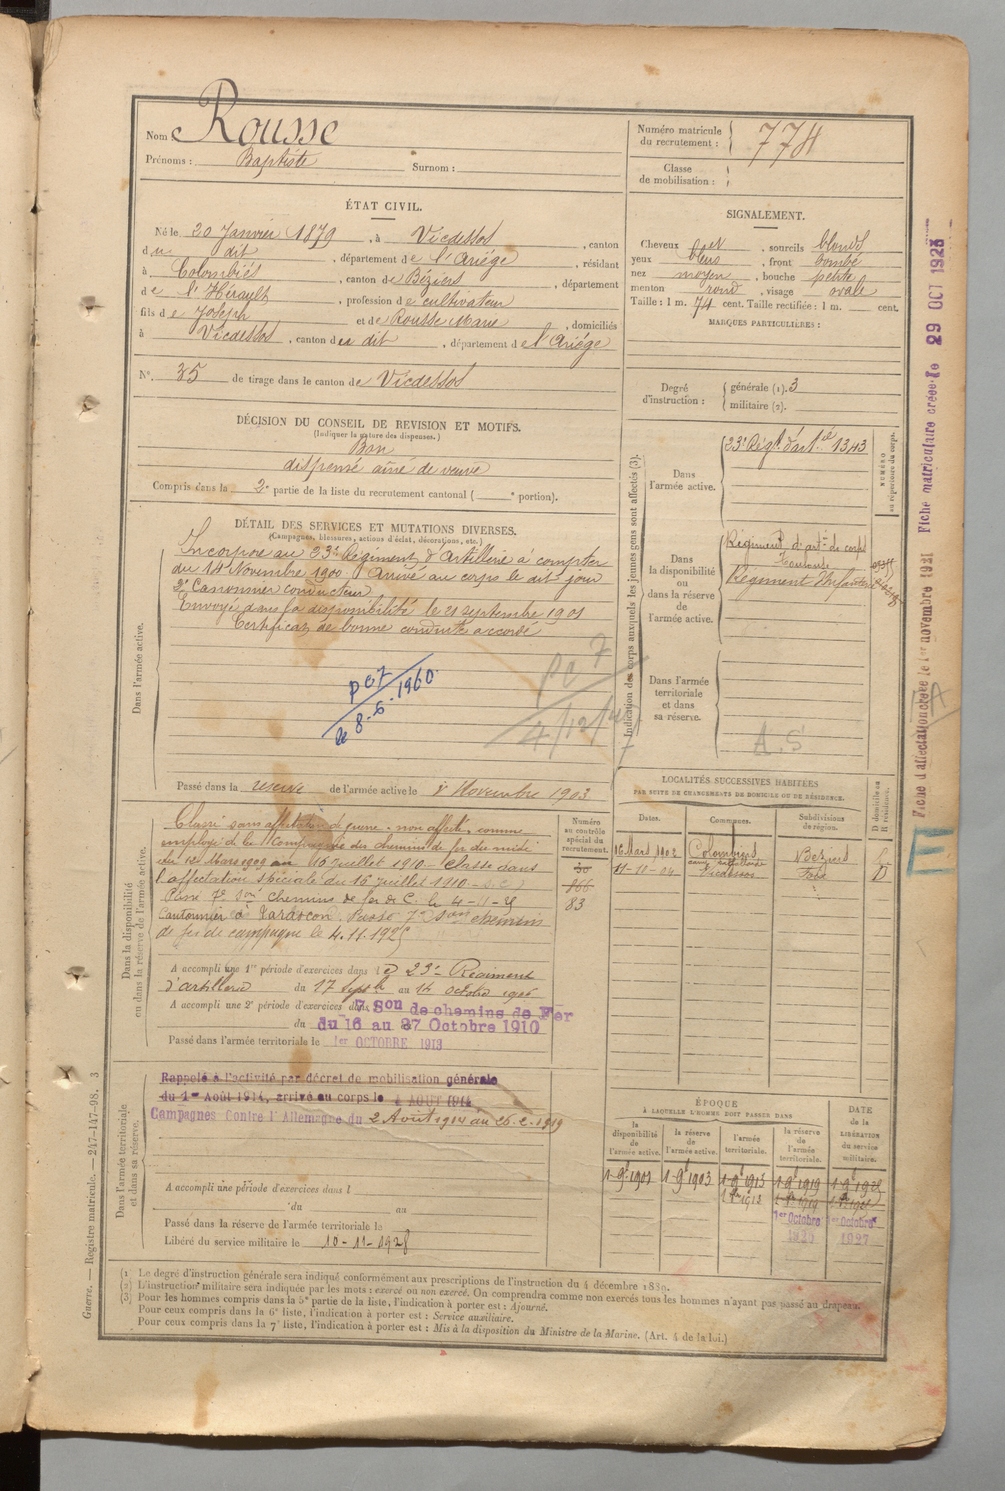 Nom Rousse
Prénoms : Baptiste Surnom :
Numéro matricule du recrutement : 774
Classe de mobilisation :
ÉTAT CIVIL.
Né le 20 Janvier 1879, à Vicdessos, canton
du dit, département de l'Ariége, résidant
à Colombiés, canton de Béziers, département
de l'Hérault, profession de cultivateur
fils de Joseph et de Rousse Marie, domiciliés
à Vicdessos, canton du dit, département de l'Ariége
N°. 35 de tirage dans le canton de Vicdessos
SIGNALEMENT.
Cheveux et, sourcils blonds
yeux bleus, front bombé
nez moyen, bouche petite
menton rond, visage ovale
Taille : 1 m. 74 cent. Taille rectifiée : 1 m. cent.
MARQUES PARTICULIÈRES :
Degré d'instruction : générale (1). 3
militaire (2).
DÉCISION DU CONSEIL DE REVISION ET MOTIFS.
(Indiquer la nature des dispenses.)
Bon
dispensé ainé de veuve
Compris dans la 2e partie de la liste du recrutement cantonal ( e portion).
DÉTAIL DES SERVICES ET MUTATIONS DIVERSES.
(Campagnes, blessures, actions d'éclat, décorations, etc.)
Dans l'armée active.
Incorporé au 23e Régiment d'Artillerie à compter
du 14 Novembre 1900 Arrivé au corps le dit jour
2e Canonnier conducteur
Envoyé dans la disponibilité le 21 septembre 1901
Certificat de bonne conduite accordé
le 8-6-1960
Passé dans la réserve de l'armée active le 1er Novembre 1903
Indication des corps auxquels les jeunes gens sont affectés (3).
NUMÉRO au répertoire du corps.
Dans l'armée active.
23e Régt d'artie 1343
Dans la disponibilité ou dans la réserve de l'armée active.
Régiment d'artie de corps
Toulouse
Régiment d'Infanterie
Dans l'armée territoriale et dans sa réserve.
A.S
Dans la disponibilité ou dans la réserve de l'armée active.
Classé sans affectation de guerre - non affecté, comme
employé de la Compagnie des chemins de fer du midi
du 12 Mars 1909 au 16 juillet 1910 - Classé dans
l'affectation spéciale du 16 juillet 1910
Passé 7e Son chemins de fer de C. le 4-11-25
Cantonnier à Tarascon. Passé 7e Son chemins
de fer de campagne le 4.11.1925
Numéro au contrôle spécial du recrutement.
30
166
83
A accompli une 1re période d'exercices dans le 23e Régiment
d'artillerie du 17 Septbre au 14 octobre 1906
A accompli une 2e période d'exercices dans 7 Son de chemins de Fer
du 16 au 27 Octobre 1910
Passé dans l'armée territoriale le 1er OCTOBRE 1913
LOCALITÉS SUCCESSIVES HABITÉES
PAR SUITE DE CHANGEMENTS DE DOMICILE OU DE RÉSIDENCE.
Dates. Communes. Subdivisions de région. D domicile ou R résidence.
16 Mars 1902 Colombiés Beziers
11-11-04 Vicdessos Foix D
Dans l'armée territoriale et dans sa réserve.
Rappelé à l'activité par décret de mobilisation générale
du 1er Août 1914, arrivé au corps le 4 AOUT 1914
Campagnes Contre l'Allemagne du 2 Août 1914 au 26-2-1919
A accompli une période d'exercices dans l
du au
Passé dans la réserve de l'armée territoriale le
Libéré du service militaire le 10-11-1928
ÉPOQUE
À LAQUELLE L'HOMME DOIT PASSER DANS
la disponibilité de l'armée active. la réserve de l'armée active. l'armée territoriale. la réserve de l'armée territoriale. DATE de la LIBÉRATION du service militaire.
1 9e 1901 1 9e 1903 1 9e 1913 1 9e 1919 1 9e 1925
1er Octobre 1er Octobre
1927
Fiche d'affectation créée le 1er novembre 1921 Fiche matriculaire créée le 29 OCT 1923
Guerre. — Registre matricule. — 247-147-98. 3
(1 Le degré d'instruction générale sera indiqué conformément aux prescriptions de l'instruction du 4 décembre 1889.
(2) L'instruction militaire sera indiquée par les mots : exercé ou non exercé. On comprendra comme non exercés tous les hommes n'ayant pas passé au drapeau.
(3) Pour les hommes compris dans la 5e partie de la liste, l'indication à porter est : Ajourné.
Pour ceux compris dans la 6e liste, l'indication à porter est : Service auxiliaire.
Pour ceux compris dans la 7e liste, l'indication à porter est : Mis à la disposition du Ministre de la Marine. (Art. 4 de la loi.)